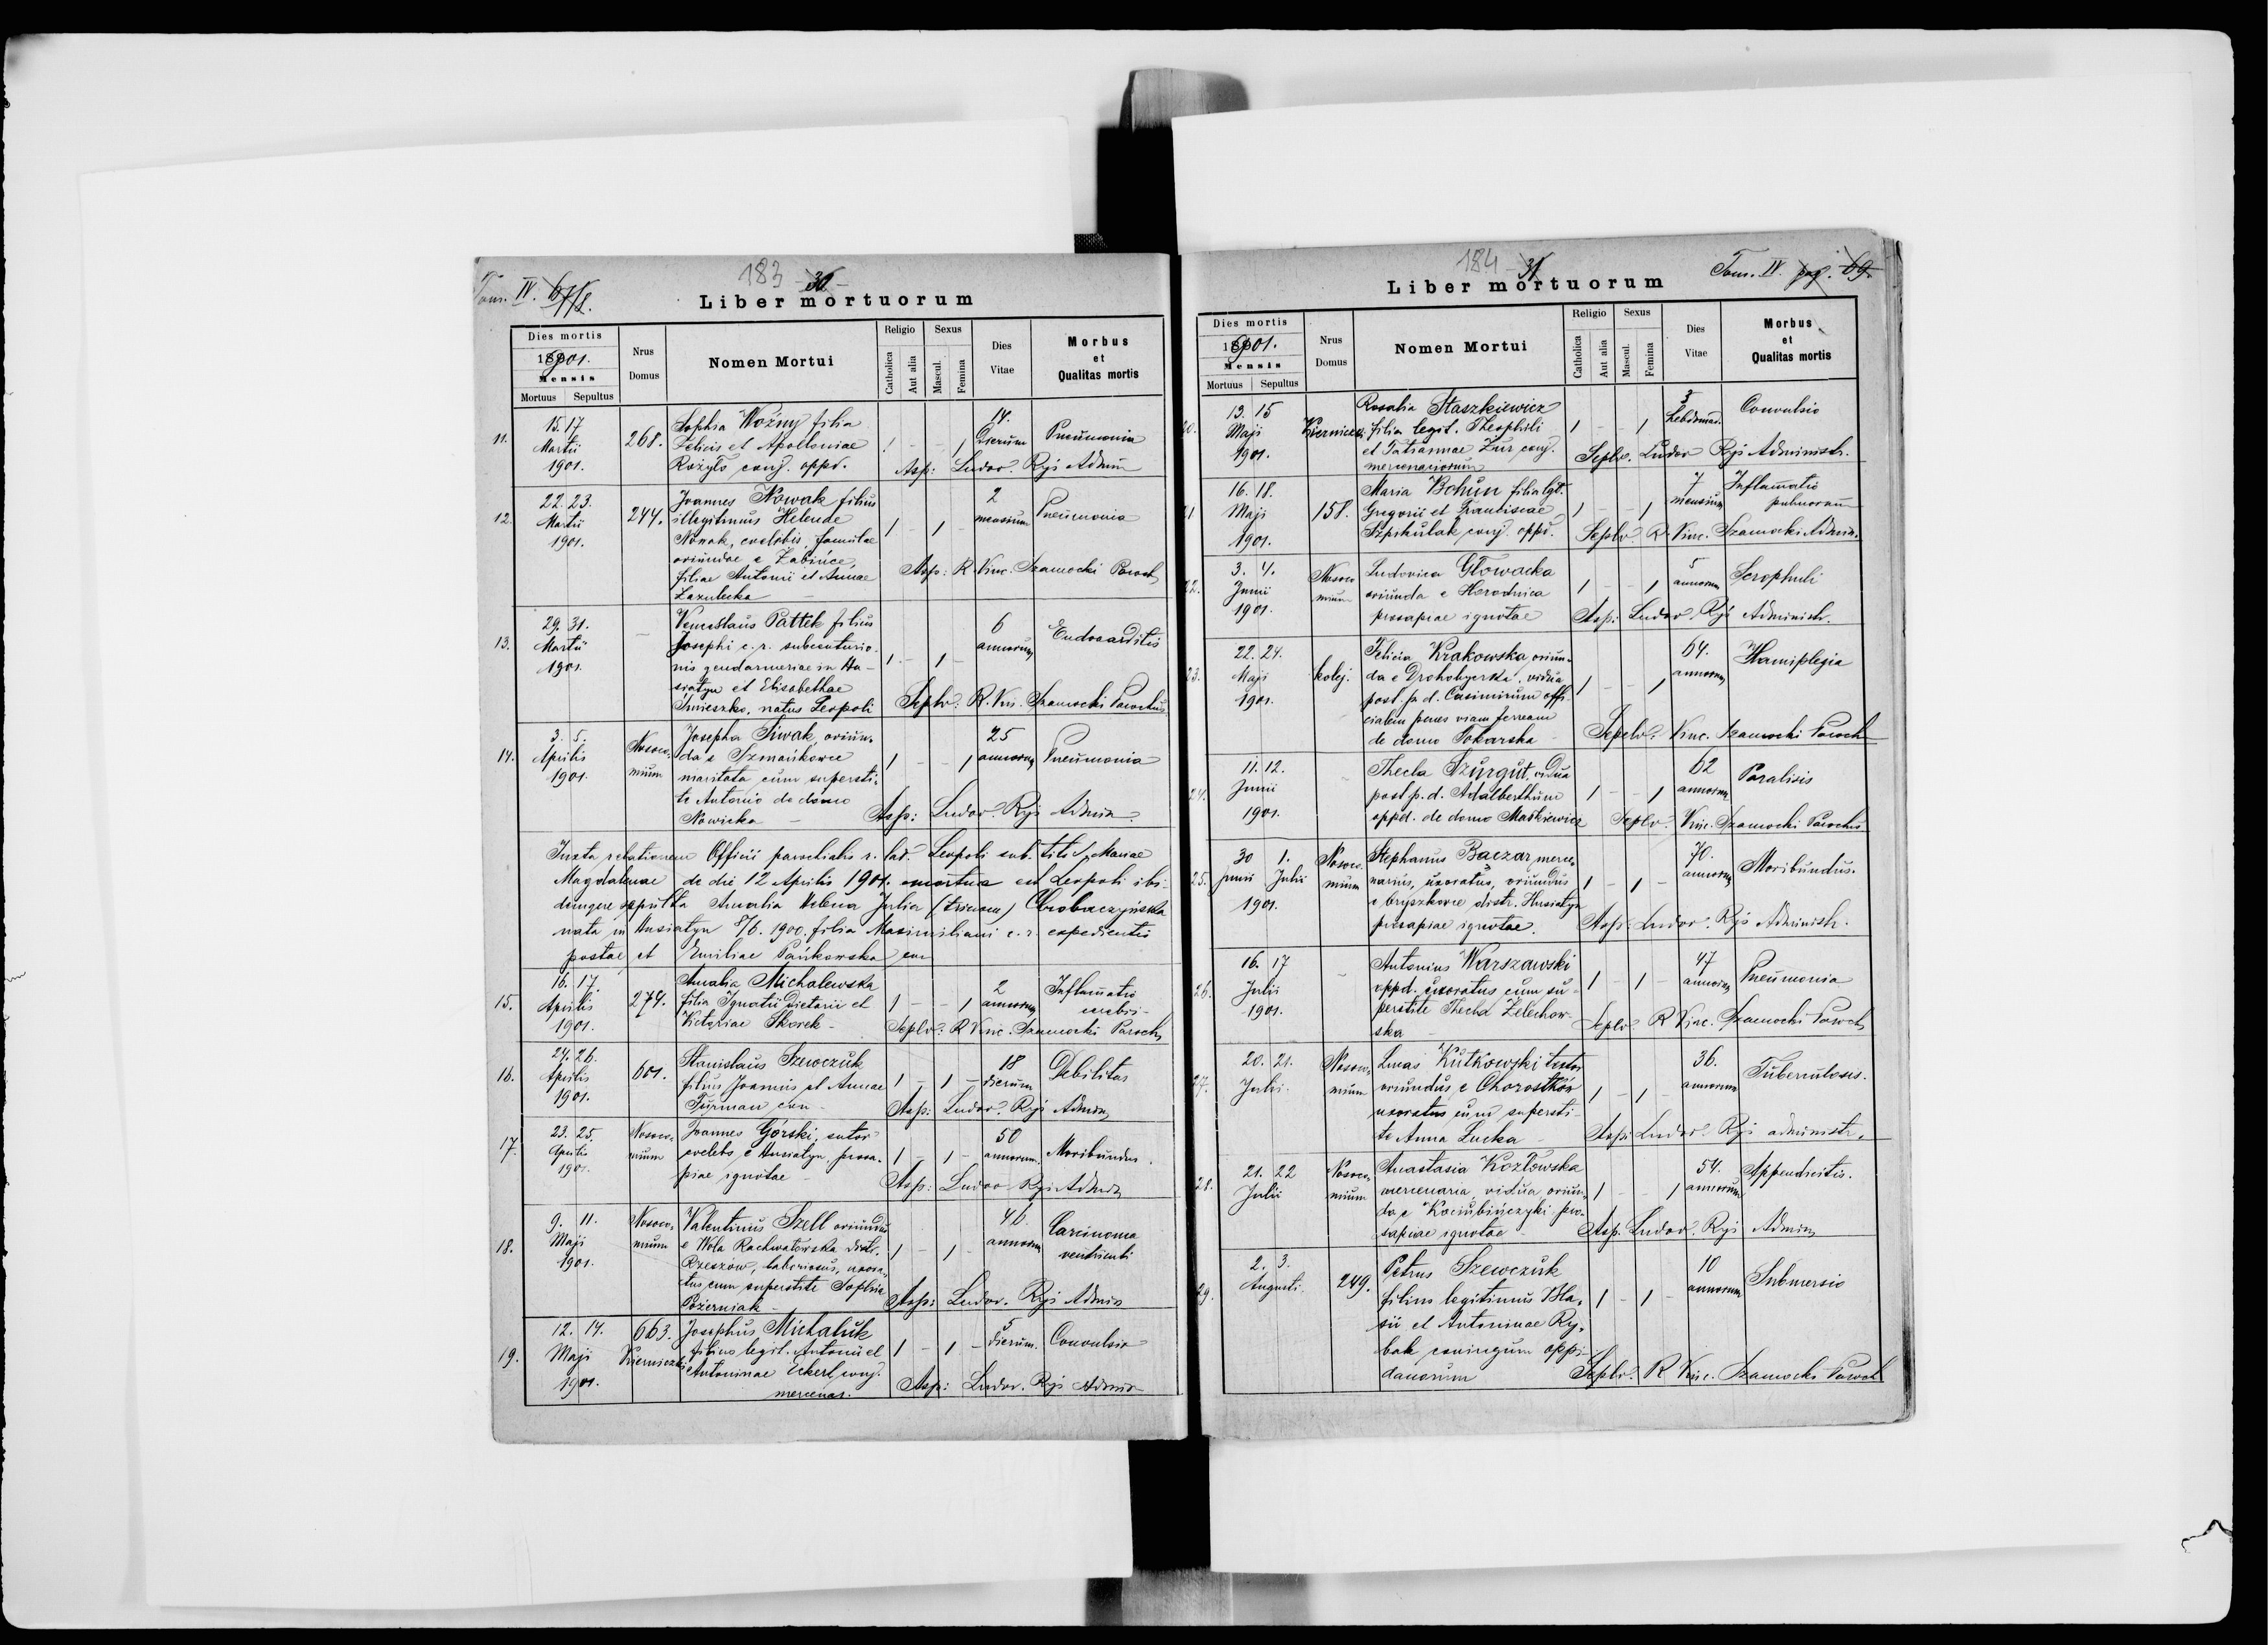 Tom. IV. 67/8.
183 30 -
Liber mortuorum
Dies mortis
1901.
Mensis
Mortuus Sepultus
Nrus Domus
Nomen Mortui
Religio
Catholica
Aut alia
Sexus
Mascul.
Femina
Dies Vitae
Morbus et Qualitas mortis
11. 15. 17 Martii 1901. 268.
Sophia Woźny filia
Felicis et Apolloniae
Rożyło conj. oppd.
1 - - 1 14. dierum Pneumonia
Asp: Ludov. Ryś Admin
12. 22. 23. Martii 1901. 244.
Joannes Nowak filius
illegitimus Helenae
Nowak, coelibis, famulae
oriundae e Żabińce,
filiae Antonii et Annae
Łazulecka
1 - 1 - 2 mensium Pneumonia
Assp: R. Vinc. Szamocki Paroch
13. 29. 31. Martii 1901. -
Venceslaus Pattek filius
Josephi c. r. subcenturio-
nis gendarmeriae in Hu-
siatyn et Elisabethae
Śmieszko, natus Leopoli
1 - 1 - 6 annorum Endocarditis
Seplv: R. Vin. Szamocki Parochus
14. 3. 5. Aprilis 1901. Nosoco-
mium
Josepha Siwak, oriun-
da e Szmańkowce
maritata cum supersti-
te Antonio de domo
Nowicka -
1 - - 1 25 annorum Pneumonia
Assp: Ludov. Ryś Admin.
Juxta relationem Officii parochialis r. lat. Leopoli sub tit. S. Mariae
Magdalenae de die 12 Aprilis 1901. mortua est Leopoli ibi-
demque sepulta Amalia Helena Julia (trinom) Chrobaczyńska
nata in Husiatyn 8/6. 1900. filia Maximiliani c. r. expedientis
postae et Emiliae Pańkowska con
15. 16. 17. Aprilis 1901. 274.
Amalia Michalewska
filia Ignatii Dietarii et
Victoriae Skorek -
1 - - 1 2 annorum Inflamatio cerebri -
Seplv: R Vinc. Szamocki Paroch
16. 24. 26. Aprilis 1901. 601.
Stanislaus Szewczuk
filius Joannis et Annae
Furman con -
1 - 1 - 18 dierum Debilitas
Assp: Ludov. Ryś Admin
17. 23. 25. Aprilis 1901. Nosoco-
mium
Joannes Górski, sutor
coelebs e Husiatyn, prosa-
piae ignotae -
1 - 1 - 50 annorum. Moribundus.
Assp: Ludov Ryś Admin
18. 9. 11. Maji 1901. Nosoco-
mium
Valentinus Szell oriundus
e Wola Rachwałowska distr.
Rzeszów, laboriosus, uxora-
tus cum superstite Sophia
Pożerniak -
1 - 1 - 46. annorum Carcinoma
Assp: Ludov. Ryś Admin
19. 12. 14. Maji 1901. 663. Kierniczki
Josephus Michaluk
filius legit. Antonii et
Antoninae Eckert conj.
mercenar.
1 - 1 - 5 dierum. Convulsio
Assp: Ludov. Ryś Admin
184 31
Tom. IV. pag. 69.
Liber mortuorum
Dies mortis
1901.
Mensis
Mortuus Sepultus
Nrus Domus
Nomen Mortui
Religio
Catholica
Aut alia
Sexus
Mascul.
Femina
Dies Vitae
Morbus et Qualitas mortis
20. 13. 15 Maji 1901. Kierniczki
Rosalia Staszkiewicz
filia legit. Theophili
et Tatiannae Żur conj.
mercenariorum
1 - - 1 3 hebdomad. Convulsio
Seplv. Ludov Ryś Administr.
21 16. 18. Maji 1901. 158.
Maria Bohun filia lgt.
Gregorii et Franciscae
Szpikulak conj. oppd.
1 - - 1 7 mensium Inflamatio pulmorum
Seplv R. Vinc. Szamocki Admin.
22. 3. 4. Junii 1901. Nosoco
mium
Ludovica Głowacka
oriunda e Horodnica
prosapiae ignotae
1 - - 1 5 annorum Scrophuli
Assp: Ludov Ryś Administr.
23. 22. 24. Maji 1901. kolej.
Felicia Krakowska oriun-
da e Drohobycska, vidua
post. p. d. Casimirum offi-
cialem penes viam ferream
de domo Tokarska -
1 - - 1 64. annorum Hamiplegia
Sepelv: Vinc. Szamocki Paroch
24. 11. 12. Junii 1901. -
Thecla Szurgut, vidua
post p. d. Adalberthum
oppd. de domo Maśkiewicz
1 - - 1 62 annorum Paralisis
Seplv: Vinc. Szamocki Parochus
25. 30 junii 1. Julii 1901. Nosoco-
mium
Stephanus Baczar merce-
narius, uxoratus, oriundus
e Cryszkowce distr. Husiatyn
prosapiae ignotae.
1 - 1 - 70. annorum Moribundus.
Assp: Ludov. Ryś Administr.
26. 16. 17 Julii 1901. -
Antonius Warszawski
oppd. uxoratus cum su-
perstite Thecla Żelechow-
ska -
1 - 1 - 47 annorum Pneumonia
Seplv: R Vinc. Szamocki Paroch
27. 20. 21. Julii. Nosoco-
mium
Lucas Kutkowski textor
oriundus e Chorostków
uxoratus cum supersti-
te Anna Lucka -
1 - 1 - 36. annorum Tuberculosis.
Assp: Ludov. Ryś administr.
28. 21. 22 Julii Nosoco-
mium
Anastasia Kozłowska
mercenaria, vidua, oriun-
da e Kociubińczyki pro-
sapiae ignotae -
1 - - 1 54. annorum Appendicitis.
Assp. Ludov. Ryś Admin
29. 2. 3. Augusti. 249.
Petrus Szewczuk
filius legitimus Bla-
sii et Antoninae Ry-
bak coniugum oppi-
danorum
1 - 1 - 10 annorum Submersio
Seplv: R Vinc. Szamocki Paroch